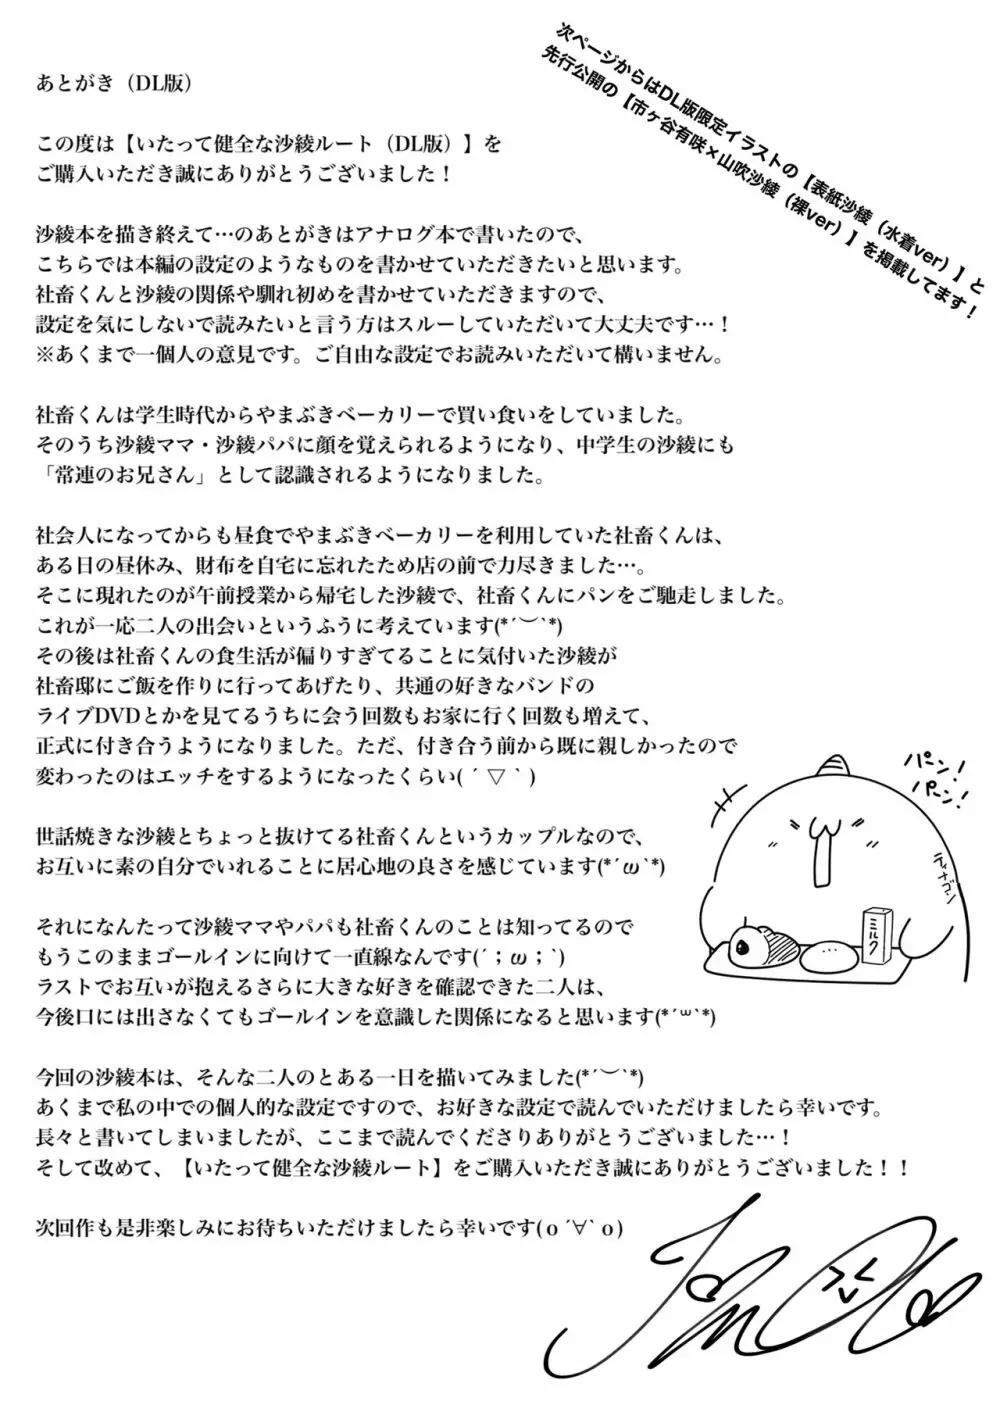 次ページからはDL版限定イラストの【表紙沙綾（水着ver）】と
先行公開の【市ヶ谷有咲×山吹沙綾（裸ver）】を掲載してます！
あとがき（DL版）
この度は【いたって健全な沙綾ルート（DL版）】を
ご購入いただき誠にありがとうございました！
沙綾本を描き終えて…のあとがきはアナログ本で書いたので、
こちらでは本編の設定のようなものを書かせていただきたいと思います。
社畜くんと沙綾の関係や馴れ初めを書かせていただきますので、
設定を気にしないで読みたいと言う方はスルーしていただいて大丈夫です…！
※あくまで一個人の意見です。ご自由な設定でお読みいただいて構いません。
社畜くんは学生時代からやまぶきベーカリーで買い食いをしていました。
そのうち沙綾ママ・沙綾パパに顔を覚えられるようになり、中学生の沙綾にも
「常連のお兄さん」として認識されるようになりました。
社会人になってからも昼食でやまぶきベーカリーを利用していた社畜くんは、
ある日の昼休み、財布を自宅に忘れたため店の前で力尽きました…。
そこに現れたのが午前授業から帰宅した沙綾で、社畜くんにパンをご馳走しました。
これが一応二人の出会いというふうに考えています(*´︶`*)
その後は社畜くんの食生活が偏りすぎてることに気付いた沙綾が
社畜邸にご飯を作りに行ってあげたり、共通の好きなバンドの
ライブDVDとかを見てるうちに会う回数もお家に行く回数も増えて、
正式に付き合うようになりました。ただ、付き合う前から既に親しかったので
変わったのはエッチをするようになったくらい( ´ ▽ ` )
世話焼きな沙綾とちょっと抜けてる社畜くんというカップルなので、
お互いに素の自分でいれることに居心地の良さを感じています(*´ω`*)
それになんたって沙綾ママやパパも社畜くんのことは知ってるので
もうこのままゴールインに向けて一直線なんです(´；ω；`)
ラストでお互いが抱えるさらに大きな好きを確認できた二人は、
今後口には出さなくてもゴールインを意識した関係になると思います(*´꒳`*)
今回の沙綾本は、そんな二人のとある一日を描いてみました(*´︶`*)
あくまで私の中での個人的な設定ですので、お好きな設定で読んでいただけましたら幸いです。
長々と書いてしまいましたが、ここまで読んでくださりありがとうございました…！
そして改めて、【いたって健全な沙綾ルート】をご購入いただき誠にありがとうございました！！
次回作も是非楽しみにお待ちいただけましたら幸いです(ｏ´∀`ｏ)
パーン！
パーン！
ティナゴン
ミルク